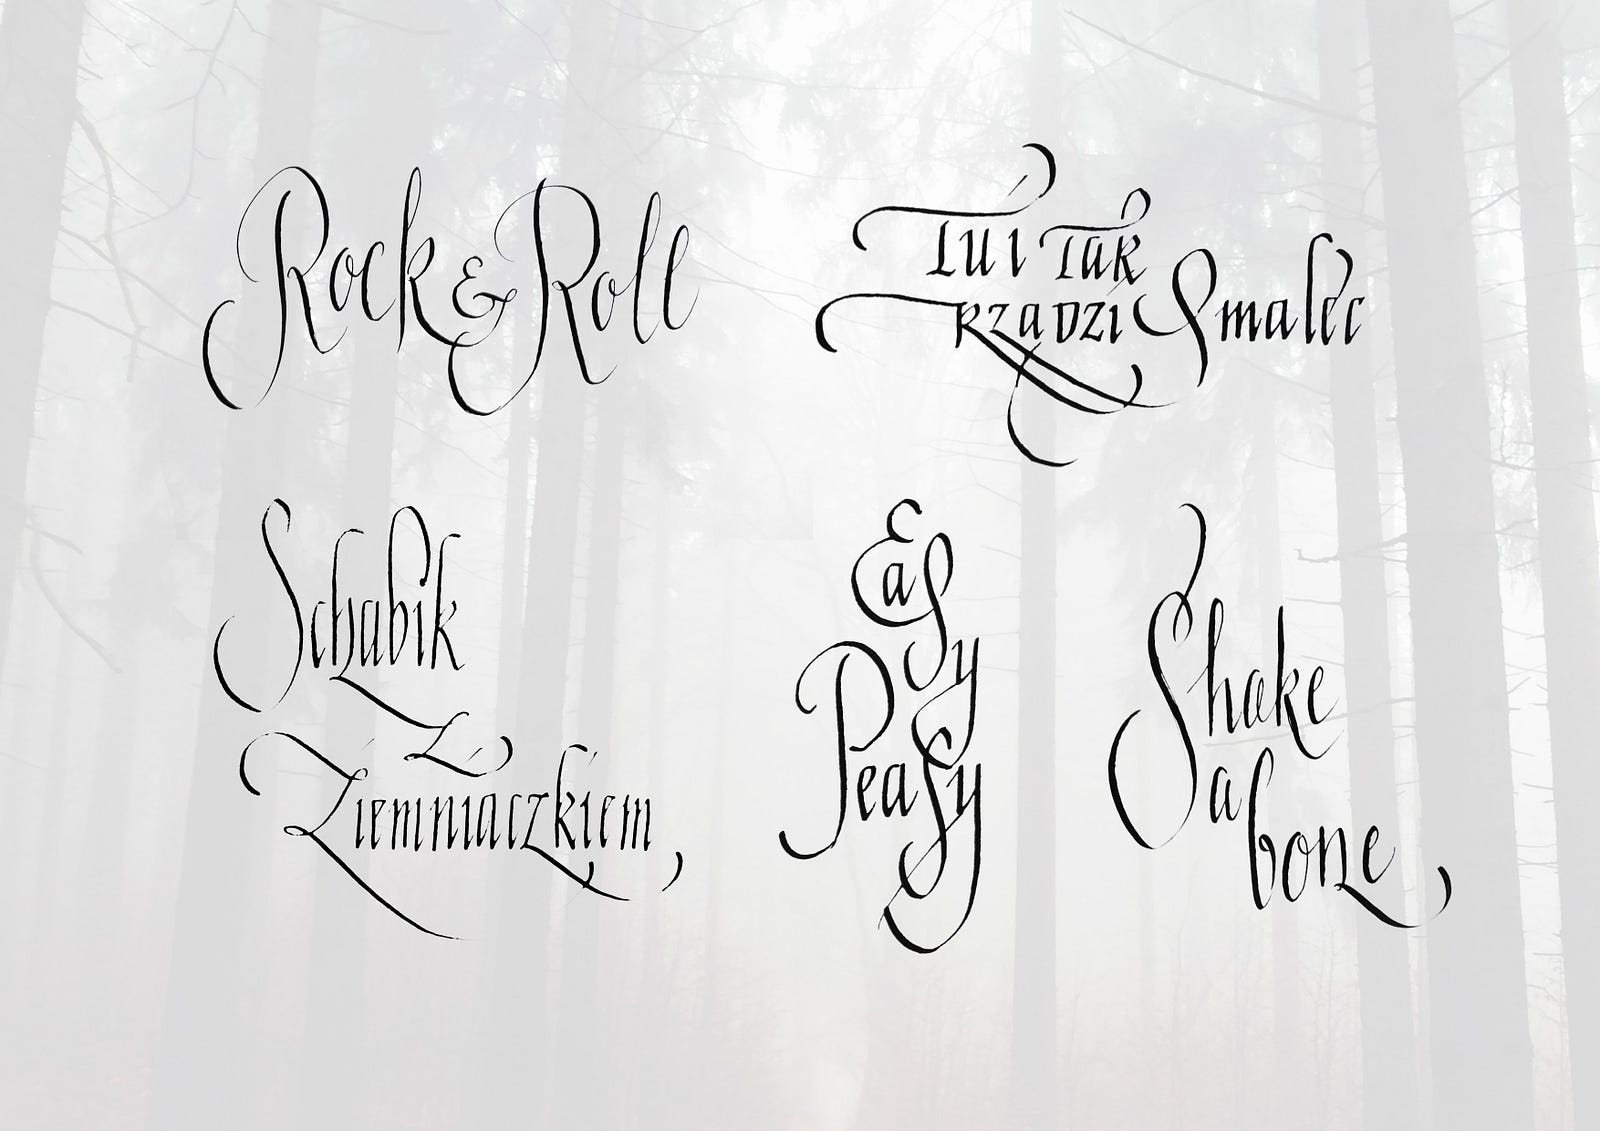 Rock & Roll
Tu i Tak
rządzi Smalec
Schabik
z
Ziemniaczkiem
Ea
sy
Peasy
Shake
a
bone